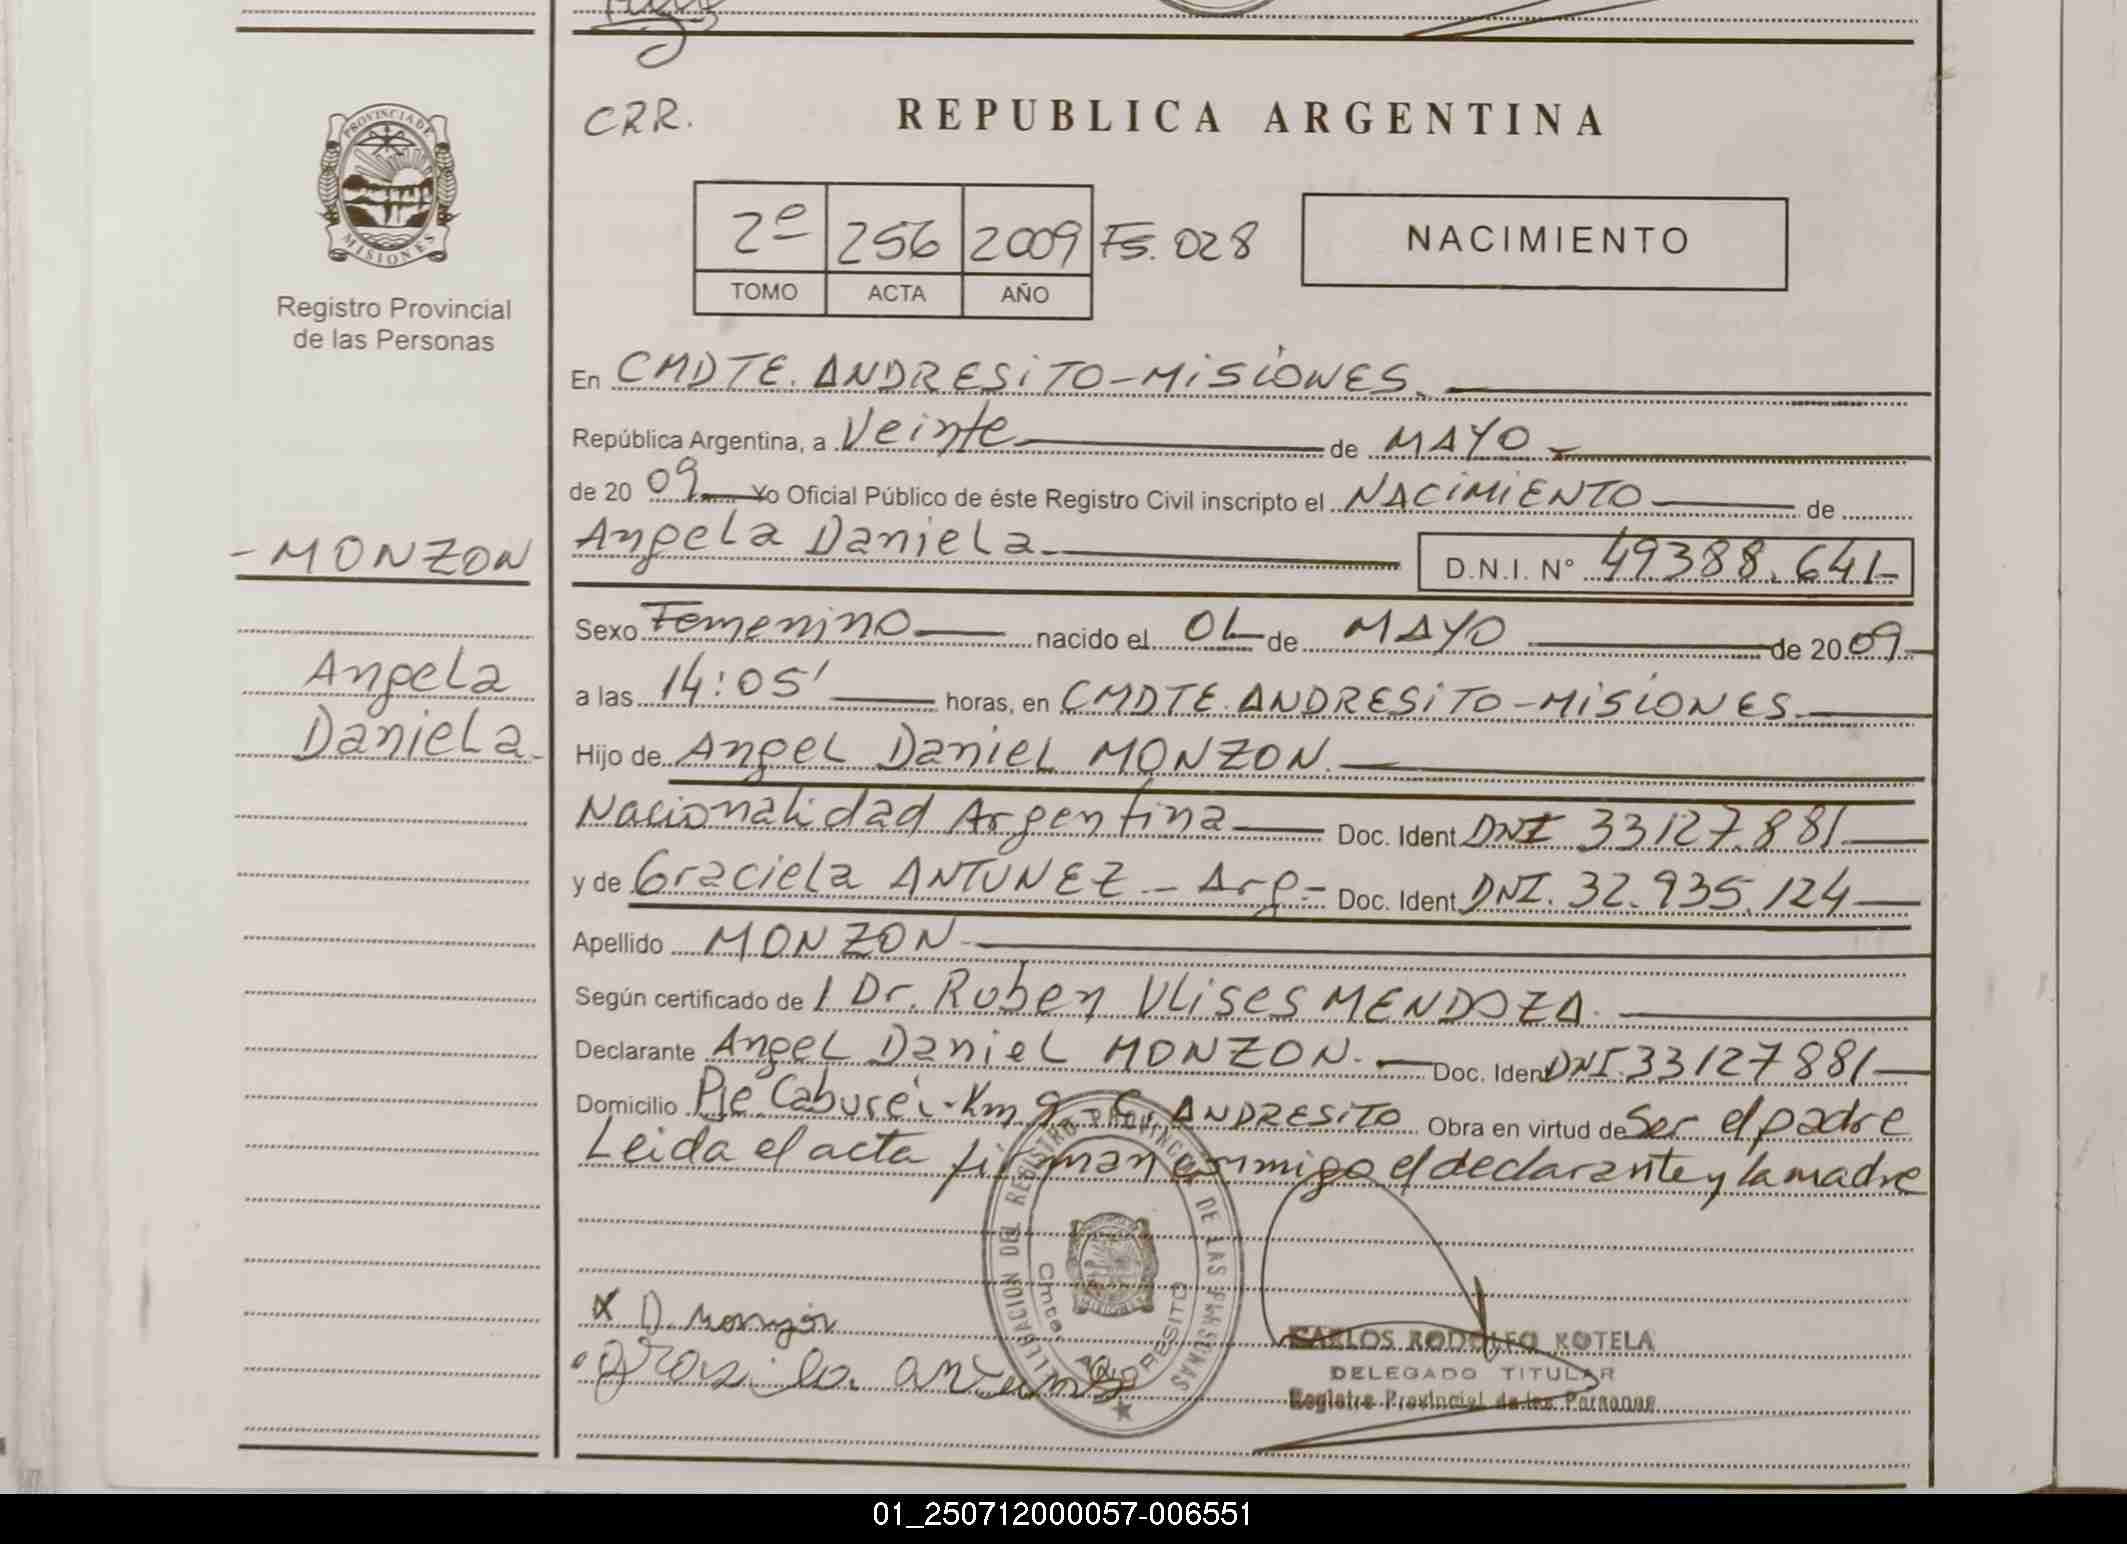 CRR.
REPUBLICA ARGENTINA
PROVINCIA DE
MISIONES
2º 256 2009 Fs. 028
NACIMIENTO
TOMO ACTA AÑO
Registro Provincial
de las Personas
En CMDTE. ANDRESiTO-MiSiONES.
República Argentina, a Veinte de MAYO.-
de 20 09 Yo Oficial Público de éste Registro Civil inscripto el NACiMiENTO de
- MONZON
Angela Daniela. D.N.I. N° 49388.641-
Sexo Femenino nacido el 01 de MAYO de 20 09
Angela
a las 14:05' horas, en CMDTE. ANDRESiTO-MiSiONES.
Daniela.-
Hijo de Angel Daniel MONZON.
Nacionalidad Argentina Doc. Ident DNI 33127.881
y de Graciela ANTUNEZ - Arg- Doc. Ident DNI. 32.935.124
Apellido MONZON-
Según certificado de / Dr. Ruben Ulises MENDOZA.
Declarante Angel Daniel MONZON.- Doc. Ident DNI.33127881
Domicilio Pje. Caburei-Km 9 - C. ANDRESiTO Obra en virtud de Ser el padre
Leida el acta firman conmigo el declarante y la madre
DELEGACION DEL REGISTRO PROVINCIAL DE LAS PERSONAS
Cmte. ANDRESITO
X D. Monzón
CARLOS RODOLFO KOTELA
DELEGADO TITULAR
Registro Provincial de las Personas
01_250712000057-006551